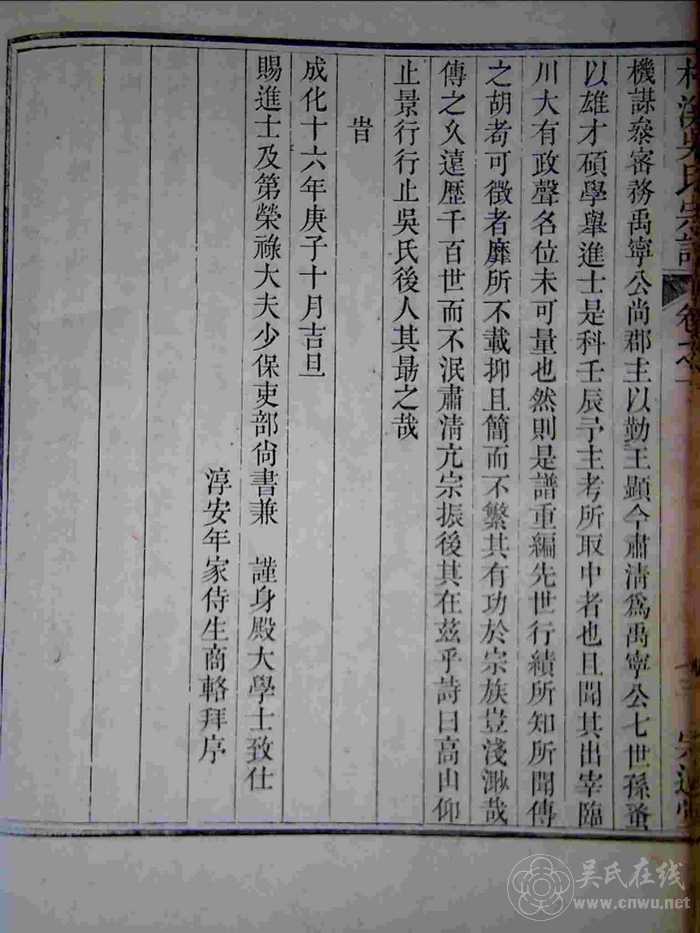 吳氏宗譜 卷之一
機謀叅審務禹寧公尚郡主以勤王顯今肅清爲禹寧公七世孫蚤
以雄才碩學舉進士是科壬辰予主考所取中者也且聞其出宰臨
川大有政聲名位未可量也然則是譜重編先世行績所知所聞傳
之胡耇可徵者靡所不載抑且簡而不繁其有功於宗族豈淺尠哉
傳之久遠歷千百世而不泯肅清亢宗振後其在茲乎詩曰高山仰
止景行行止吳氏後人其勗之哉
旹
成化十六年庚子十月吉旦
賜進士及第榮祿大夫少保吏部尙書兼 謹身殿大學士致仕
淳安年家侍生商輅拜序
吴氏在线
www.cnwu.net